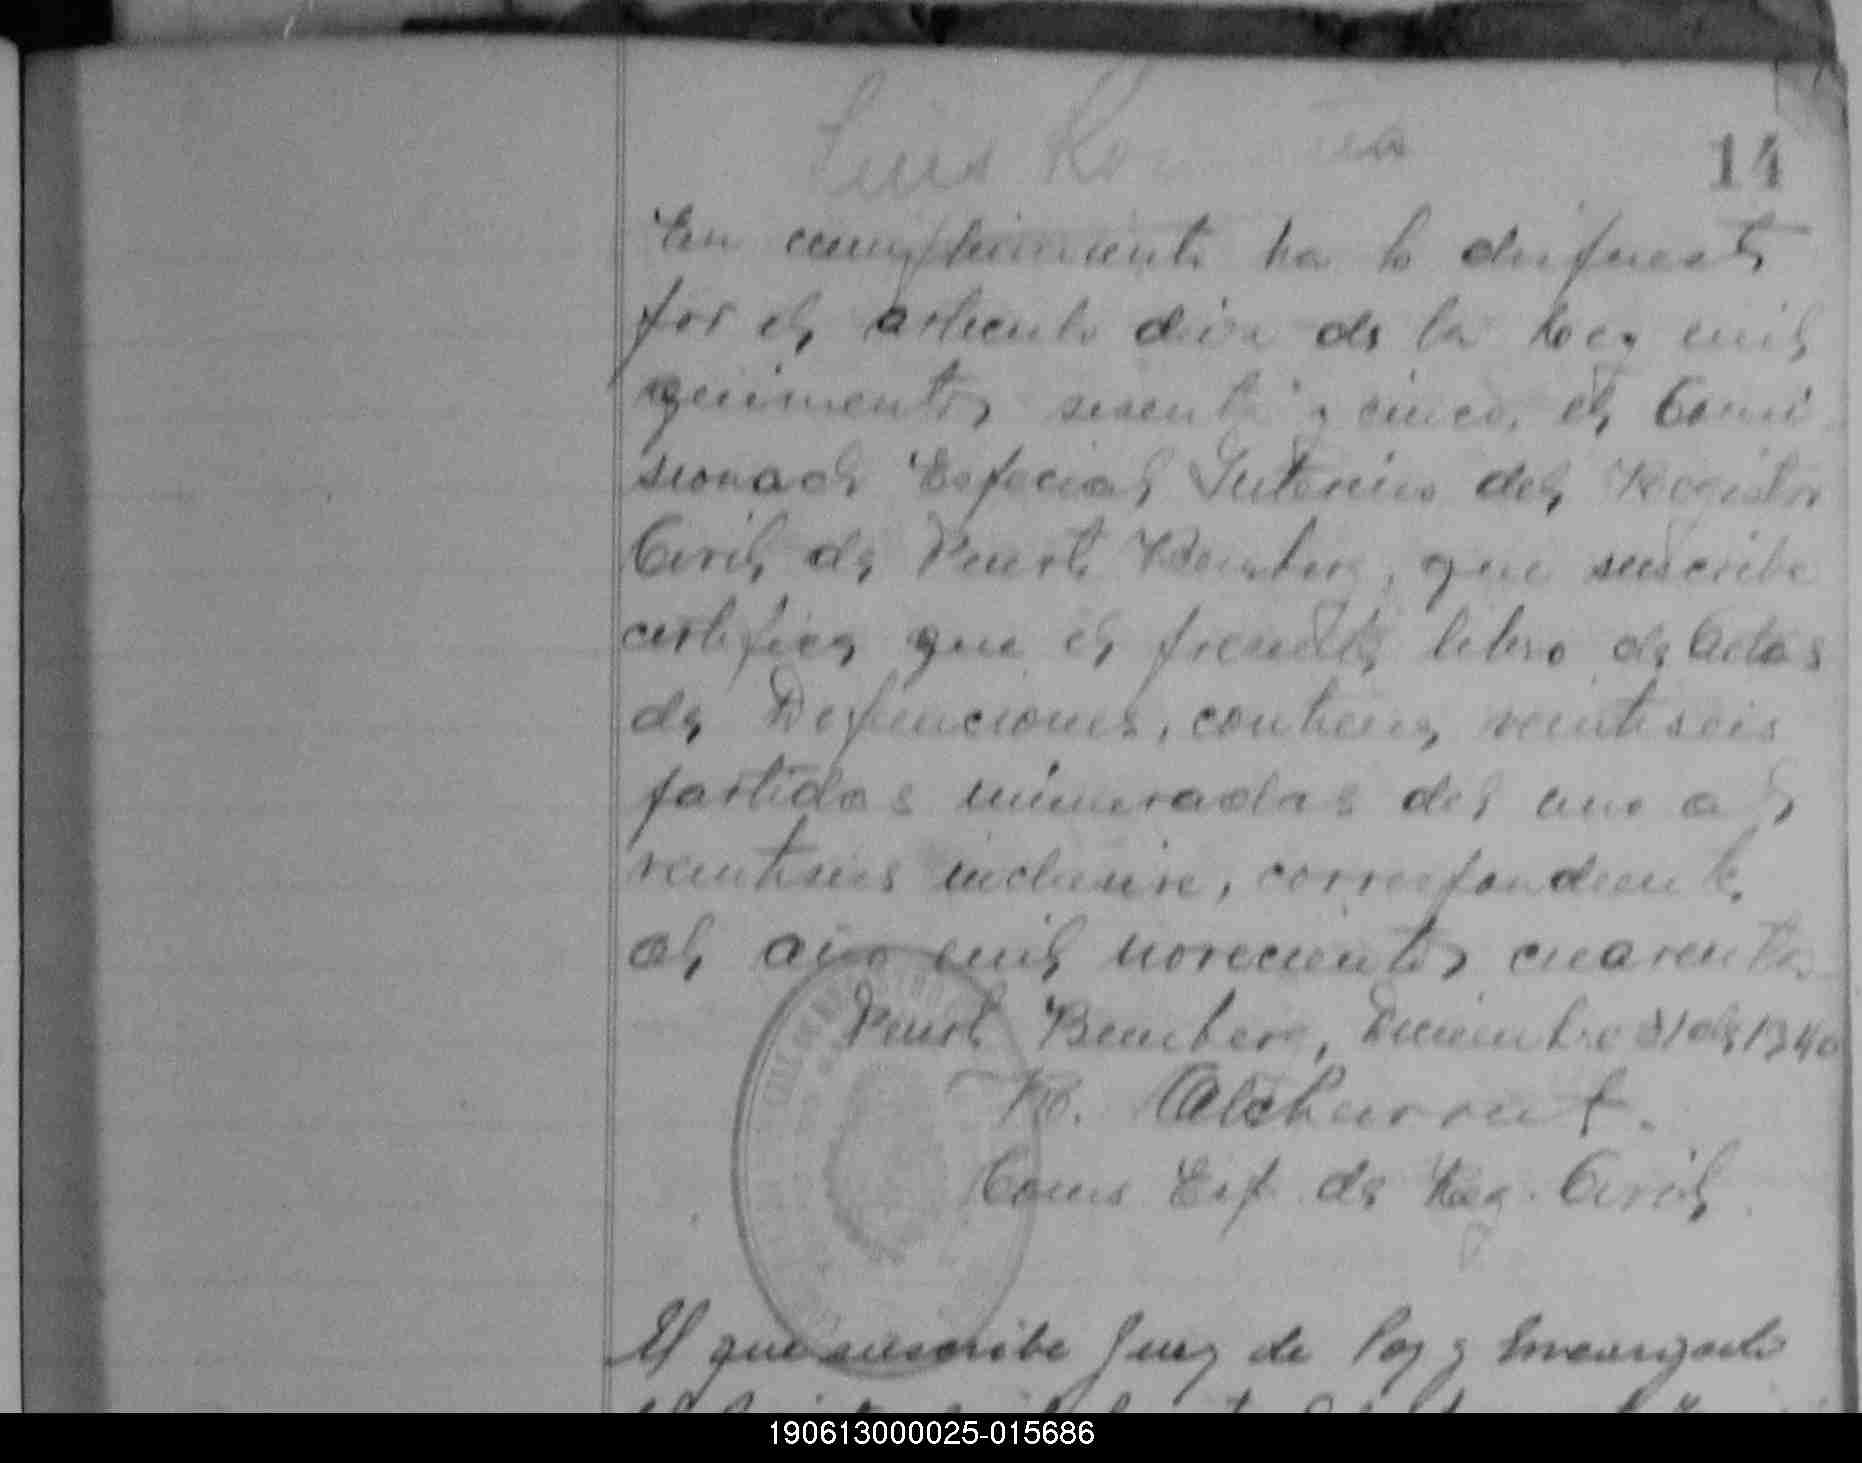 Luis
14
En cumplimiento ha lo dispuesto
por el articulo diez de la Ley mil
quinientos sesenta y cinco, el Comi
sionado Especial Interino del Registro
Civil de Puerto Bemberg, que suscribe
certifica que el presente libro de Actas
de Defunciones, contiene veintiseis
partidas numeradas del uno al
veintiseis inclusive, correspondiente
al año mil novecientos cuarenta
Puerto Bemberg, Diciembre 31 de 1940
R. Alchurrut.
Comis Esp. de Reg. Civil
El que suscribe Juez de Paz y Encargado
190613000025-015686